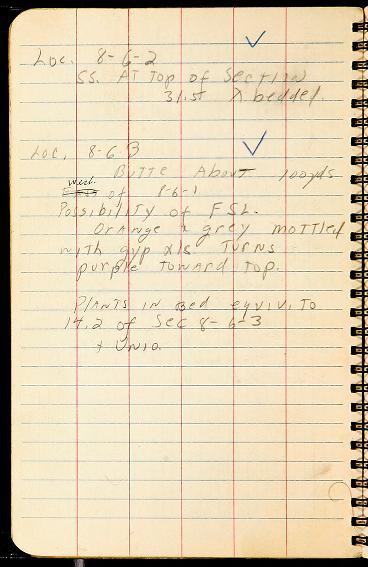 Loc. 8-6-2
SS. AT Top of Section
31.5t X bedded.
Loc. 8-6 3
BUTTE About 100yds
West
of 8-6-1
Possibility of FSL.
Orange & grey mottled
with gyp xls Turns
purple toward top.
Plants in Bed equiv. To
14.2 of Sec 8-6-3
+ Unio.